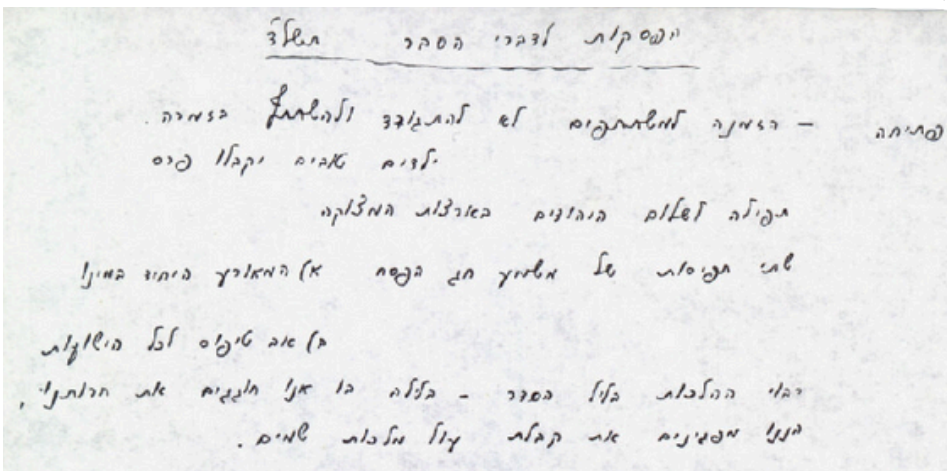 הפסקות לדברי הסבר תשל"ד
פתיחה – הזמינה למשתתפים לא להתגודד ולהשתתף בזמרה.
ילדים טובים יקבלו פרס
תפילה לשלום היהודים בארצות המצוקה
שתי תפיסות של משמע חג הפסח א) המאורע היחיד במינו
ב) אב טיפוס לכל הישועות
רבוי ההלכות בליל הסדר – בלילה בו אנו חוגגים את חרותנו,
הננו מפגינים את קבלת עול מלכות שמים.